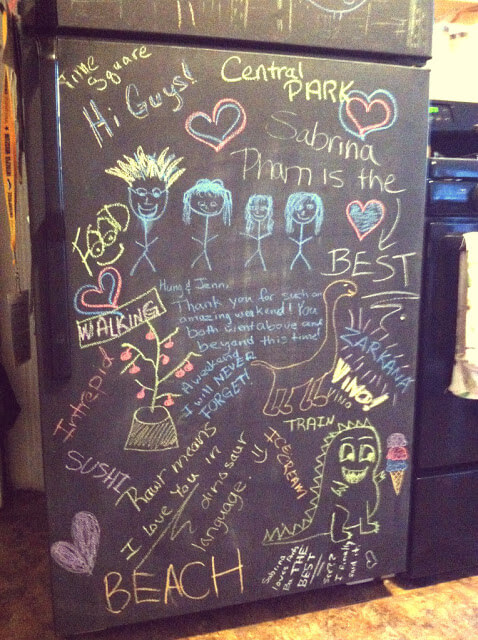 Time
Square
Central
PARK
Hi Guys!
Sabrina
Pham is the
BEST
FOOD
WALKING
Thank you for such an
amazing weekend! You
both went above and
beyond this time!
A weekend
I will NEVER
FORGET!
ZARKANA
VINO!
VINO
Intrepid
TRAIN
SUSHI
ICECREAM
Rawr means
I love you in
dinosaur
language.
BEACH
Sabrina
loves
THE
BEST
I finally
said it!